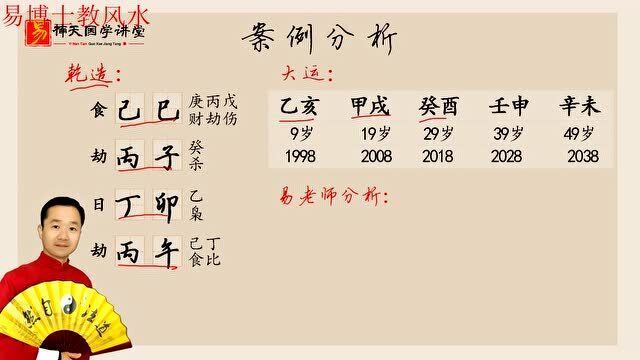 易博士教风水
易 禤天国学讲堂
案例分析
乾造：
食 己巳 庚丙戊
财劫伤
劫 丙子 癸
杀
日 丁卯 乙
枭
劫 丙午 己丁
食比
大运：
乙亥 甲戌 癸酉 壬申 辛未
9岁 19岁 29岁 39岁 49岁
1998 2008 2018 2028 2038
易老师分析：
然自法道